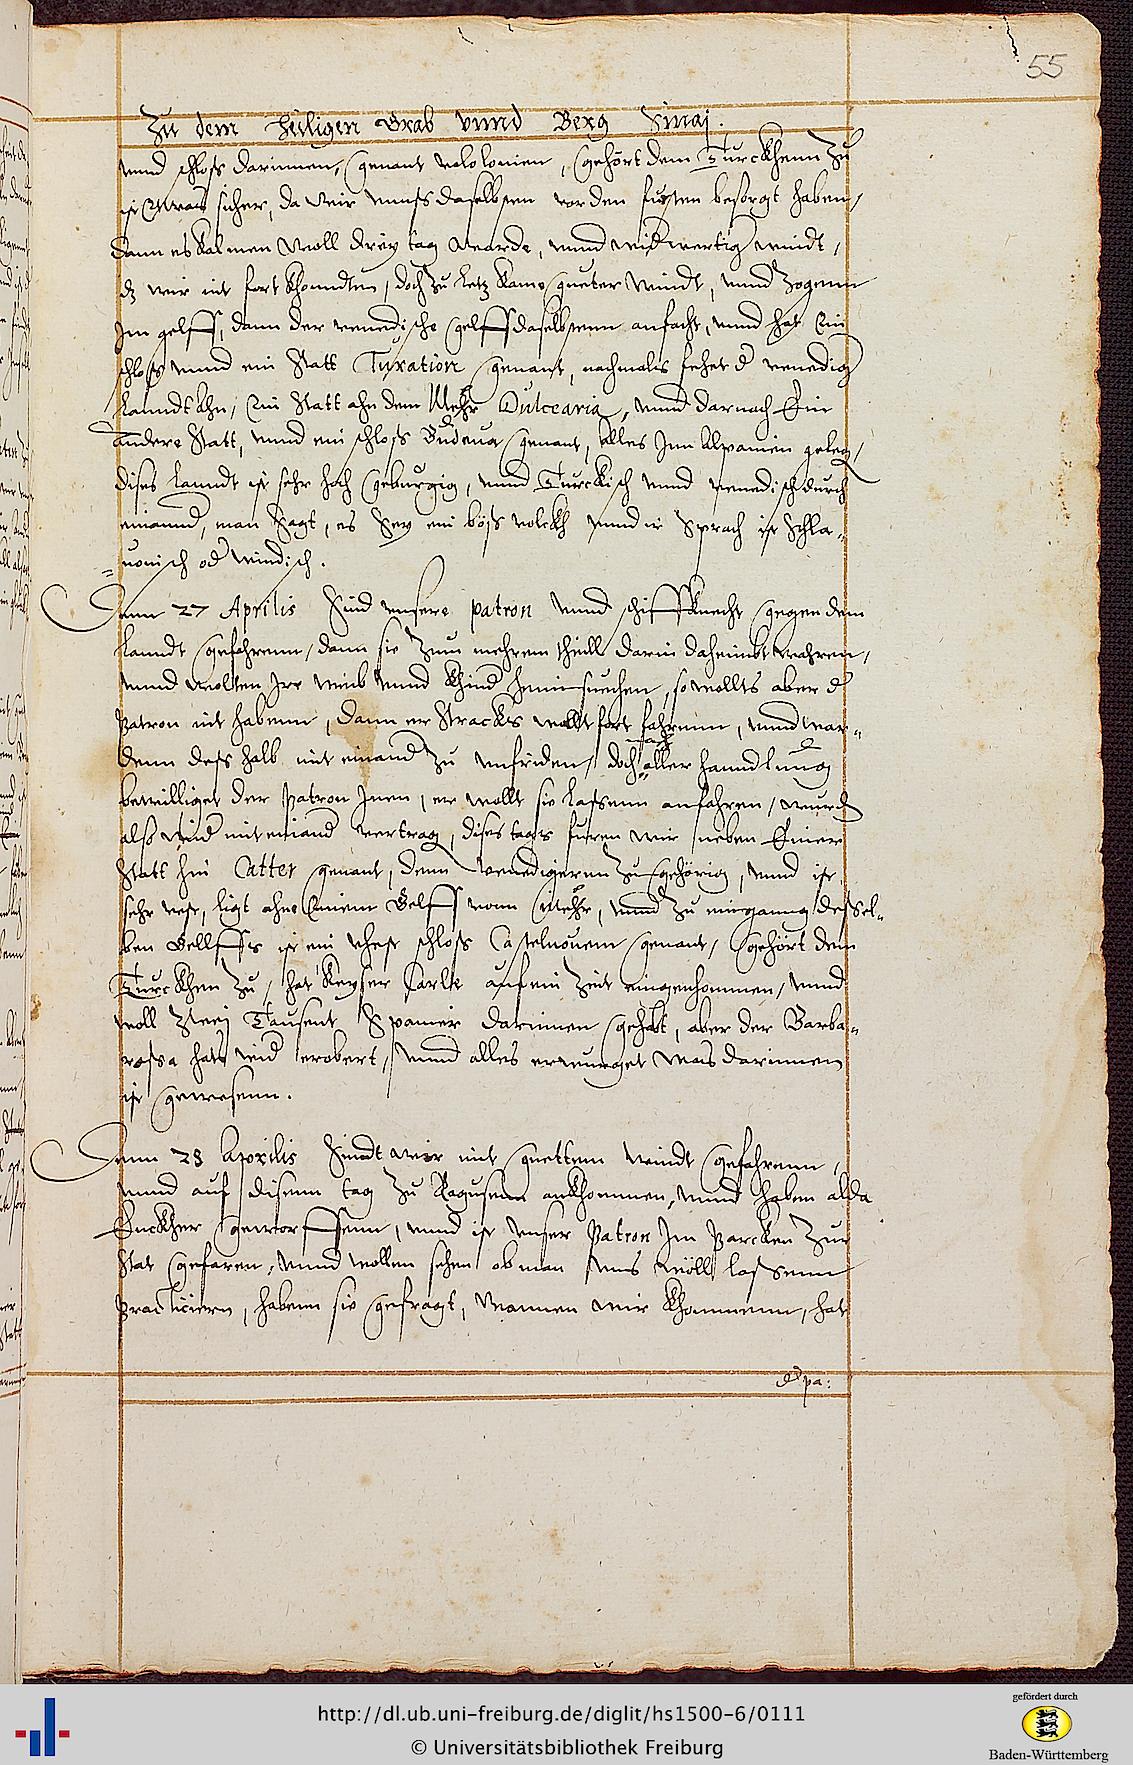 55
Zu dem Heiligen Grab vnnd Berg Sinaj.
vnnd schloss darinnen, genant velolonien, gehört dem Turckhenn Zu
ist etwas sicher, da wir vnnss daselbsten vor den fusten besorgt haben,
dann es kalmen woll dreÿ tag warde, vnnd widwertig windt,
dz wir nit fort khonndten, doch Zu letz kame gueter windt, vnnd Zogenn
Jm gelff, dann der venedische gelff daselbstenn anfacht, vnnd hat ein
schloss vnnd ein Statt Turation genant, nachmals fehet d venedig
Lanndt Ahn, ein Statt ahn dem Mehr Dulcearia, vnnd darnach Ein
andere Statt, vnnd ein schloss Budeua genant, alles Jnn Alpanien geleg,
dises Lanndt ist sehr hoch geburgig, vnnd Turckisch vnnd venedisch durch
einannd, man Sagt, es Seÿ ein böss volckh vnnd ir Sprach ist Schla-
uonisch od windisch.
Denn 27 Aprilis Sind vnsere patron vnnd schiffknecht gegen dem
Lanndt gefahrenn, dann sie Zum mehrem theill darin daheimbt wahren,
vnnd wolten Jre weib vnnd khind heimsuechen, so wollts aber d
Patron nit habenn, dann er Stracks wollt fort fahrenn, vnnd war-
denn dess halb mit einand Zu vnfriden, doch nach aller hanndlung
bewilliget der Patron Jnen, er wollt sie lassenn anfahren, wurd
also wid mit einand vertrag, dises tags furen wir neben Einer
Statt hin Catter genant, denn Venedigeren Zu gehörig, vnnd ist
sehr vest, ligt ahn Einem Gelff vom Mehr, vnnd Zu eingang dessel-
ben Gellffs ist ein vhest schloss Castelnouem genant, gehört dem
Turckhen Zu, hat Keÿser Carle auf ein Zeit eingenhommen, vnnd
woll Zweÿ Tausent Spanier darinnen gehabt, aber der Barba-
rossa hats wid erobert, vnnd alles erwurget was darinnen
ist gewesenn.
Denn 28 Aprilis Sindt wir mit guettem windt gefahrenn,
vnnd auf disenn tag Zu Ragusenn ankhommen, vnnd haben alda
Enckher geworffenn, vnnd ist vnser Patron Jm Parcken Zur
Stat gefaren, vnnd wollen sehen ob man vnns wöll lassenn
practiciern, habenn sie gefragt, wannen wir khommenn, hat
d pa:
http://dl.ub.uni-freiburg.de/diglit/hs1500-6/0111
© Universitätsbibliothek Freiburg
gefördert durch
Baden-Württemberg